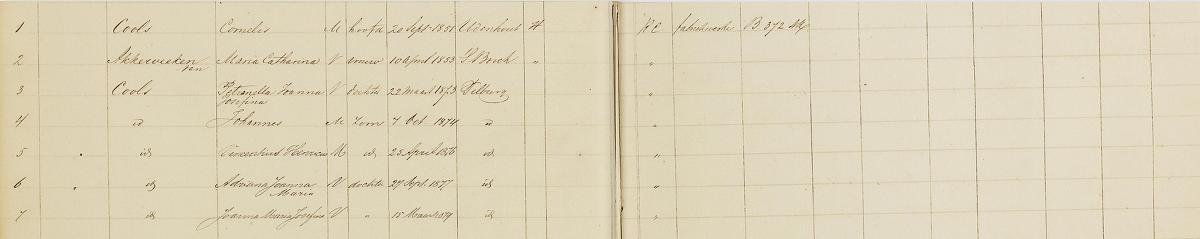 1 Cools Cornelis M hoofd 20 Sept 1851 Udenhout H RC fabriekwerker B 372
2 Akkerveeken van Maria Catharina V vrouw 10 April 1853 " "
3 Cools Petronella Joanna Josefina V dochter 22 Maart 1873 Tilburg "
4 id Johannes M Zoon 7 Oct 1874 id "
5 id Henricus M id 25 April 1876 id "
6 id Adriana Joanna Maria V dochter 27 Sept 1877 id "
7 id Joanna Maria Josefina V " 15 Maart 1879 id "